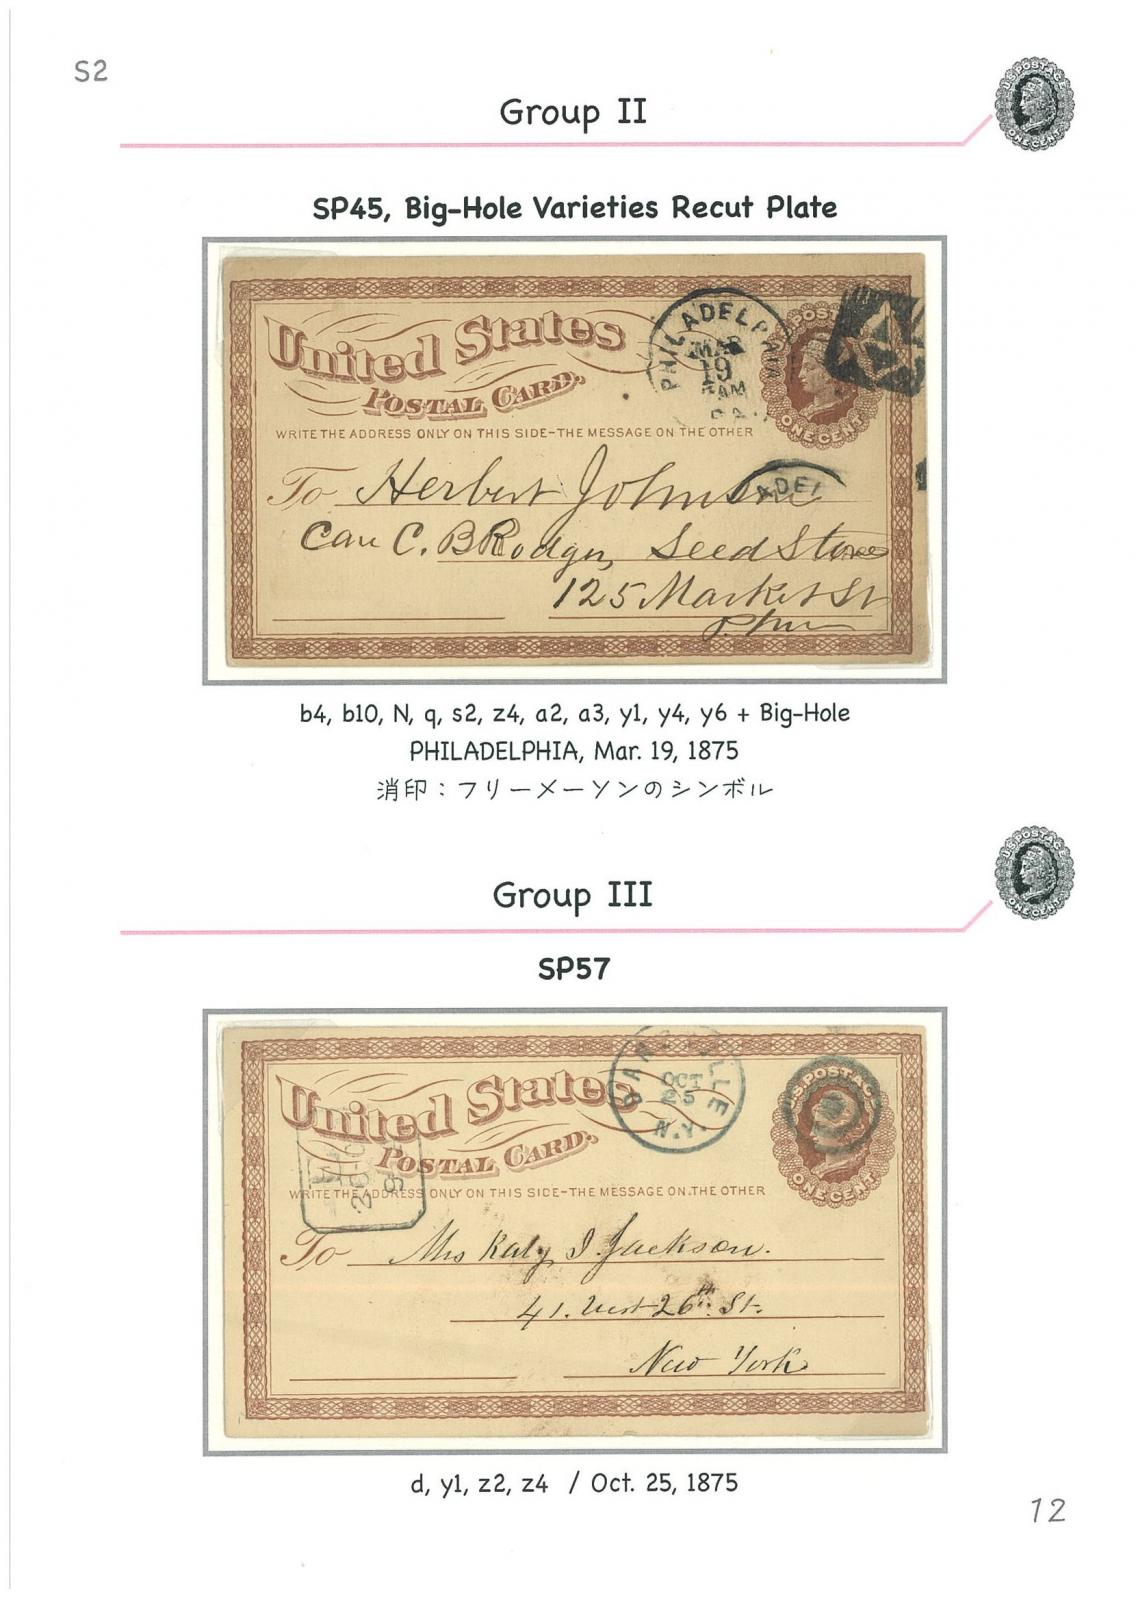 S2
Group II
U.S.POSTAGE
ONE CENT
SP45, Big-Hole Varieties Recut Plate
United States
POSTAL CARD.
PHILADELPHIA
MAR
19
AM
PA.
POST
ONE CENT
WRITE THE ADDRESS ONLY ON THIS SIDE-THE MESSAGE ON THE OTHER
ADEL
To Herbert Johnson
Care C. B Rodgers Seed Store
125 Market St
b4, b10, N, q, s2, z4, a2, a3, y1, y4, y6 + Big-Hole
PHILADELPHIA, Mar. 19, 1875
消印：フリーメーソンのシンボル
Group III
U.S.POSTAGE
ONE CENT
SP57
United States
POSTAL CARD.
DANSVILLE
OCT
25
N.Y.
U.S.POSTAGE
ONE CENT
WRITE THE ADDRESS ONLY ON THIS SIDE-THE MESSAGE ON THE OTHER
To Mrs Katy J. Jackson.
41. West 26th. St.
New York
d, y1, z2, z4 / Oct. 25, 1875
12